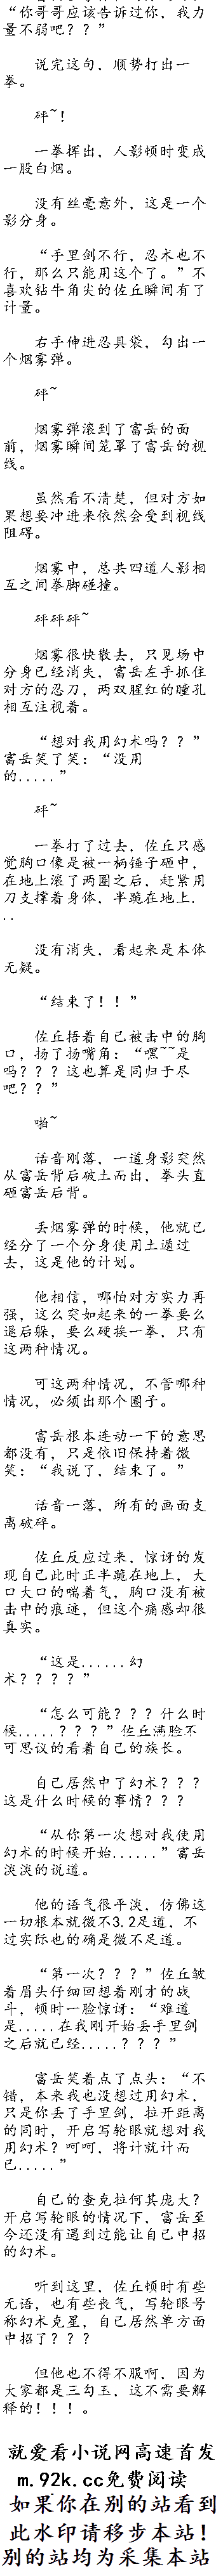 “你哥哥应该告诉过你，我力
量不弱吧？？”
说完这句，顺势打出一
拳。
砰~！
一拳挥出，人影顿时变成
一股白烟。
没有丝毫意外，这是一个
影分身。
“手里剑不行，忍术也不
行，那么只能用这个了。”不
喜欢钻牛角尖的佐丘瞬间有了
计量。
右手伸进忍具袋，勾出一
个烟雾弹。
砰~
烟雾弹滚到了富岳的面
前，烟雾瞬间笼罩了富岳的视
线。
虽然看不清楚，但对方如
果想要冲进来依然会受到视线
阻碍。
烟雾中，总共四道人影相
互之间拳脚碰撞。
砰砰砰~
烟雾很快散去，只见场中
分身已经消失，富岳左手抓住
对方的忍刀，两双腥红的瞳孔
相互注视着。
“想对我用幻术吗？？”
富岳笑了笑：“没用
的.....”
砰~
一拳打了过去，佐丘只感
觉胸口像是被一柄锤子砸中，
在地上滚了两圈之后，赶紧用
刀支撑着身体，半跪在地上.
..
没有消失，看起来是本体
无疑。
“结束了！！”
佐丘捂着自己被击中的胸
口，扬了扬嘴角：“嘿~~是
吗？？？这也算是同归于尽
吧？？”
啪~
话音刚落，一道身影突然
从富岳背后破土而出，拳头直
砸富岳后背。
丢烟雾弹的时候，他就已
经分了一个分身使用土遁过
去，这是他的计划。
他相信，哪怕对方实力再
强，这么突如起来的一拳要么
退后躲，要么硬挨一拳，只有
这两种情况。
可这两种情况，不管哪种
情况，必须出那个圈子。
富岳根本连动一下的意思
都没有，只是依旧保持着微
笑：“我说了，结束了。”
话音一落，所有的画面支
离破碎。
佐丘反应过来，惊讶的发
现自己此时正半跪在地上，大
口大口的喘着气，胸口没有被
击中的痕迹，但这个痛感却很
真实。
“这是......幻
术？？？？”
“怎么可能？？？什么时
候.....？？？”佐丘满脸不
可思议的看着自己的族长。
自己居然中了幻术？？？
这是什么时候的事情？？？
“从你第一次想对我使用
幻术的时候开始......”富岳
淡淡的说道。
他的语气很平淡，仿佛这
一切根本就微不3.2足道，不
过实际也的确是微不足道。
“第一次？？？”佐丘皱
着眉头仔细回想着刚才的战
斗，顿时一脸惊讶：“难道
是.....在我刚开始丢手里剑
之后就已经.....？？？”
富岳笑着点了点头：“不
错，本来我也没想过用幻术，
只是你丢了手里剑，拉开距离
的同时，开启写轮眼就想对我
用幻术？呵呵，将计就计而
已.....”
自己的查克拉何其庞大？
开启写轮眼的情况下，富岳至
今还没有遇到过能让自己中招
的幻术。
听到这里，佐丘顿时有些
无语，也有些丧气，写轮眼号
称幻术克星，自己居然单方面
中招了？？？
但他也不得不服啊，因为
大家都是三勾玉，这不需要解
释的！！！。
就爱看小说网高速首发
m.92k.cc免费阅读
如果你在别的站看到
此水印请移步本站！
别的站均为采集本站